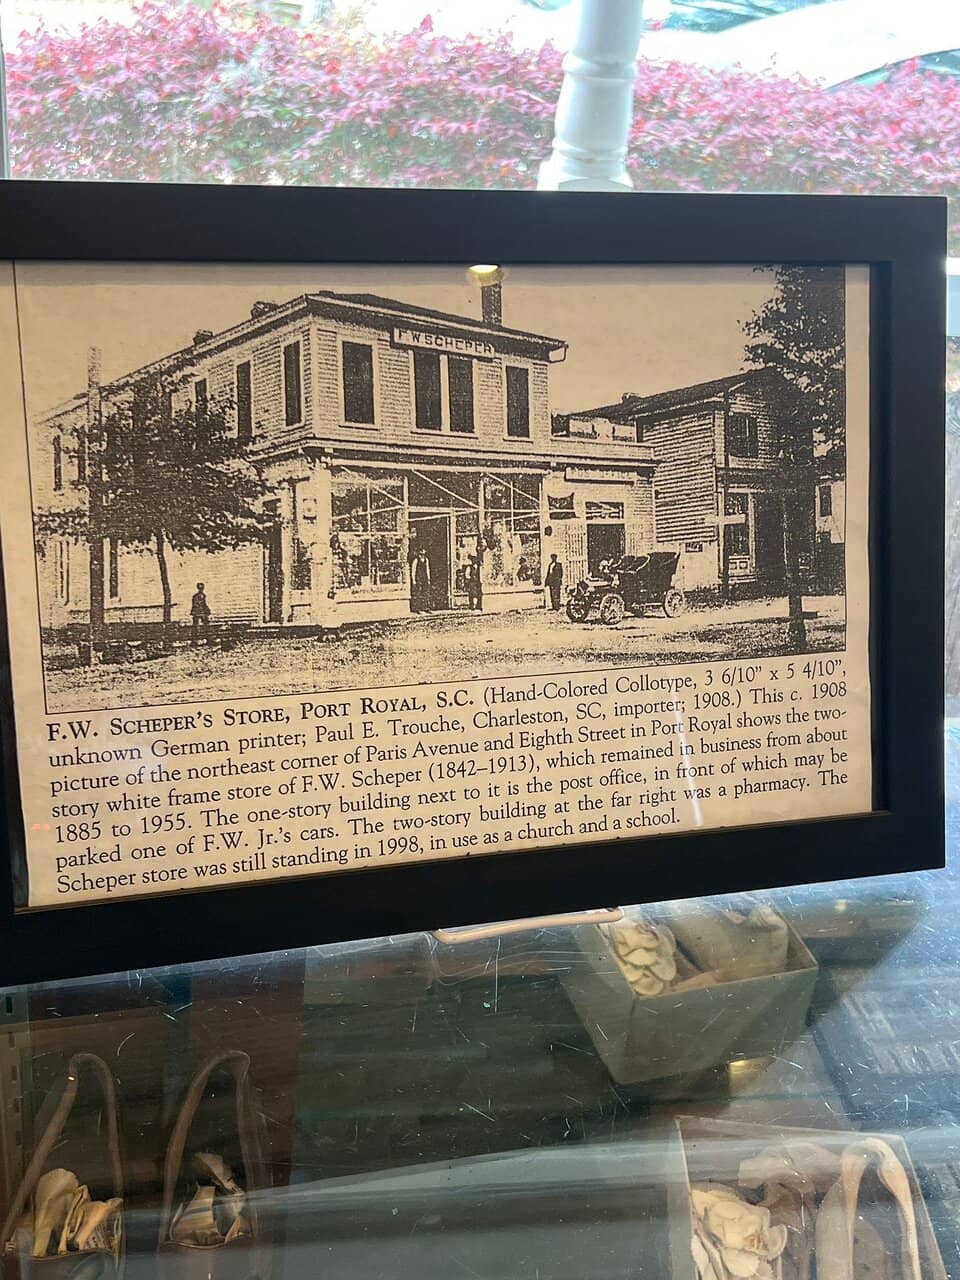 F.W. SCHEPER
F.W. SCHEPER'S STORE, PORT ROYAL, S.C. (Hand-Colored Collotype, 3 6/10" x 5 4/10",
unknown German printer; Paul E. Trouche, Charleston, SC, importer; 1908.) This c. 1908
picture of the northeast corner of Paris Avenue and Eighth Street in Port Royal shows the two-
story white frame store of F.W. Scheper (1842–1913), which remained in business from about
1885 to 1955. The one-story building next to it is the post office, in front of which may be
parked one of F.W. Jr.'s cars. The two-story building at the far right was a pharmacy. The
Scheper store was still standing in 1998, in use as a church and a school.